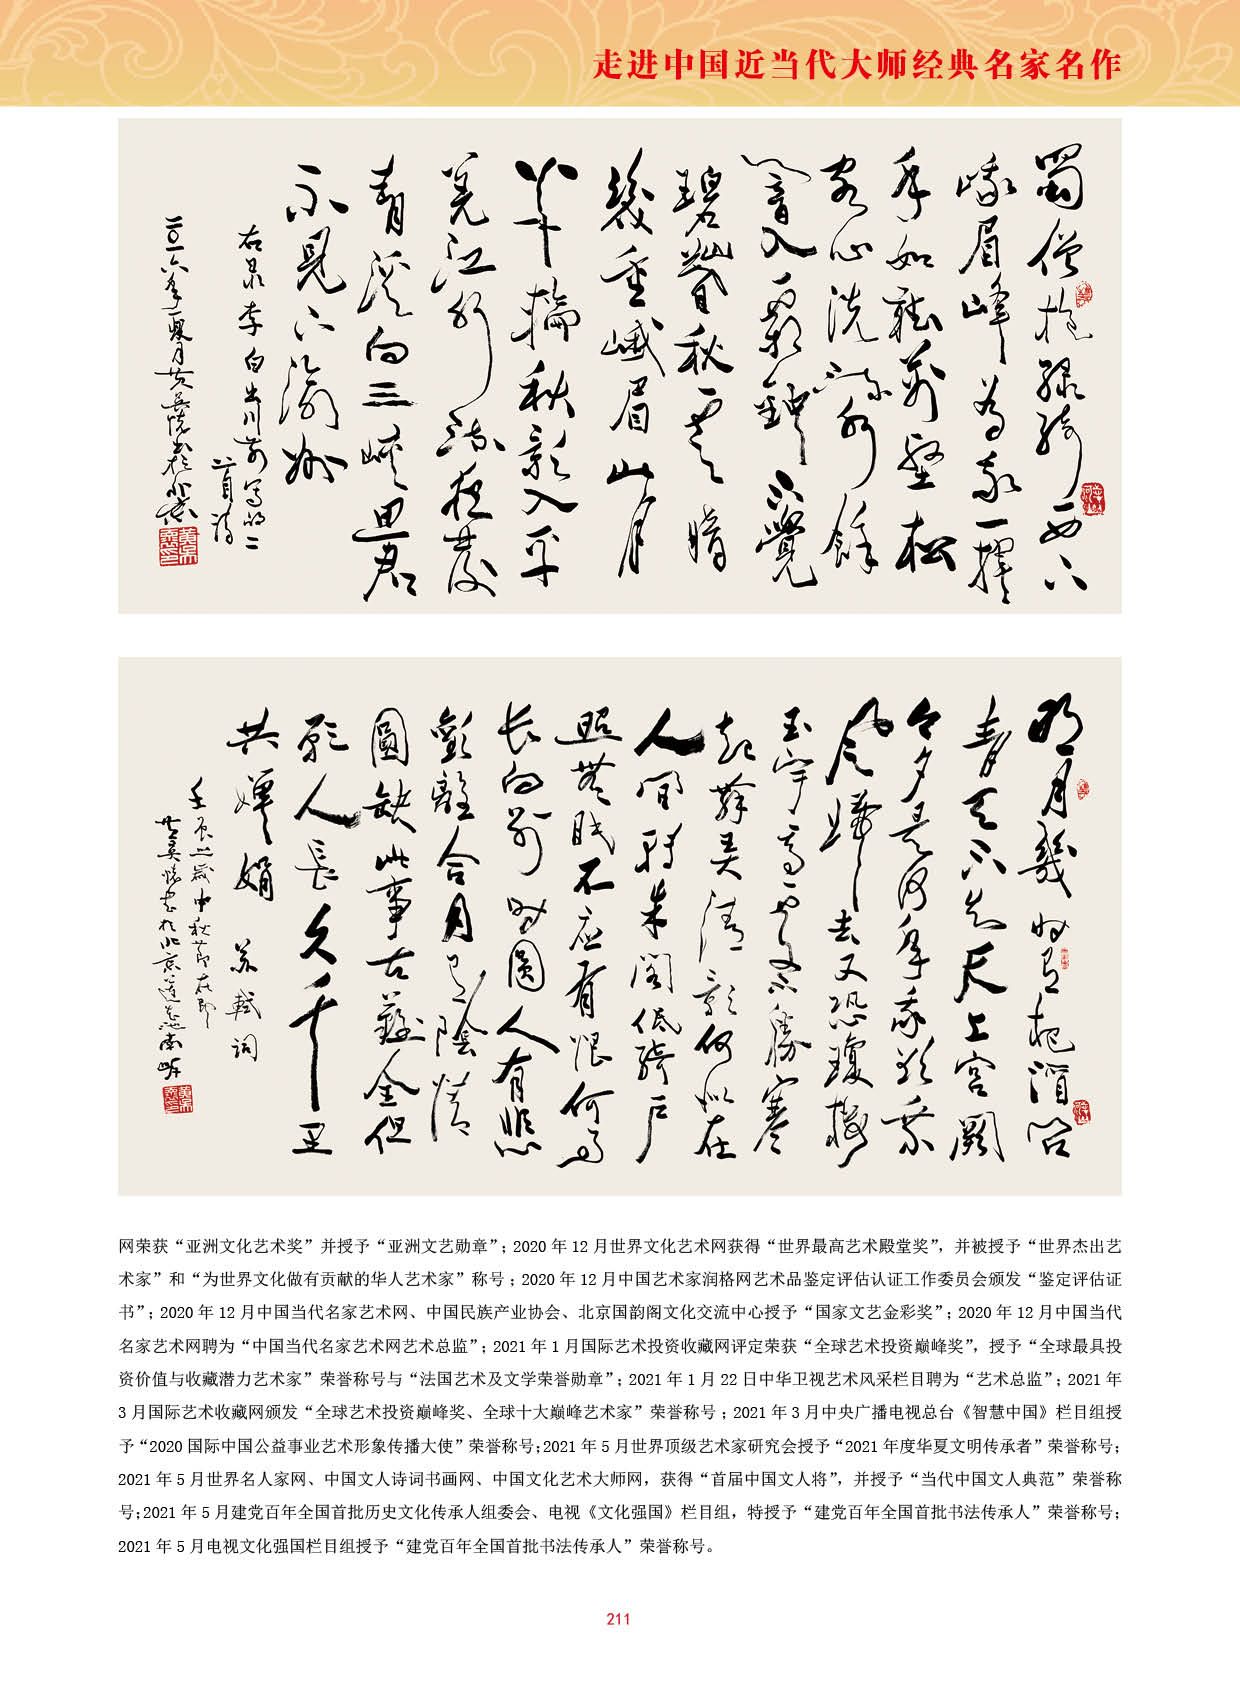 走进中国近当代大师经典名家名作
蜀僧抱綠綺西下
峨眉峰為我一揮
手如聽萬壑松
客心洗流水餘
響入霜鐘不覺
碧山暮秋雲暗
幾重峨眉山月
半輪秋影入平
羌江水流夜發
青溪向三峽思君
不見下渝州
右录李白出川前写的二
首詩
二〇一六年夏月
明月幾時有把酒問
青天不知天上宮闕
今夕是何年我欲乘
風歸去又恐瓊樓
玉宇高處不勝寒
起舞弄清影何似在
人間轉朱閣低綺戶
照無眠不應有恨何事
長向別時圓人有悲
歡離合月有陰晴
圓缺此事古難全但
願人長久千里
共嬋娟 蘇軾詞
之歲中秋節在即
书於北京莲花池南畔
网荣获“亚洲文化艺术奖”并授予“亚洲文艺勋章”；2020 年 12 月世界文化艺术网获得“世界最高艺术殿堂奖”，并被授予“世界杰出艺
术家”和“为世界文化做有贡献的华人艺术家”称号；2020 年 12 月中国艺术家润格网艺术品鉴定评估认证工作委员会颁发“鉴定评估证
书”；2020 年 12 月中国当代名家艺术网、中国民族产业协会、北京国韵阁文化交流中心授予“国家文艺金彩奖”；2020 年 12 月中国当代
名家艺术网聘为“中国当代名家艺术网艺术总监”；2021 年 1 月国际艺术投资收藏网评定荣获“全球艺术投资巅峰奖”，授予“全球最具投
资价值与收藏潜力艺术家”荣誉称号与“法国艺术及文学荣誉勋章”；2021 年 1 月 22 日中华卫视艺术风采栏目聘为“艺术总监”；2021 年
3 月国际艺术收藏网颁发“全球艺术投资巅峰奖、全球十大巅峰艺术家”荣誉称号；2021 年 3 月中央广播电视总台《智慧中国》栏目组授
予“2020 国际中国公益事业艺术形象传播大使”荣誉称号；2021 年 5 月世界顶级艺术家研究会授予“2021 年度华夏文明传承者”荣誉称号；
2021 年 5 月世界名人家网、中国文人诗词书画网、中国文化艺术大师网，获得“首届中国文人将”，并授予“当代中国文人典范”荣誉称
号；2021 年 5 月建党百年全国首批历史文化传承人组委会、电视《文化强国》栏目组，特授予“建党百年全国首批书法传承人”荣誉称号；
2021 年 5 月电视文化强国栏目组授予“建党百年全国首批书法传承人”荣誉称号。
211